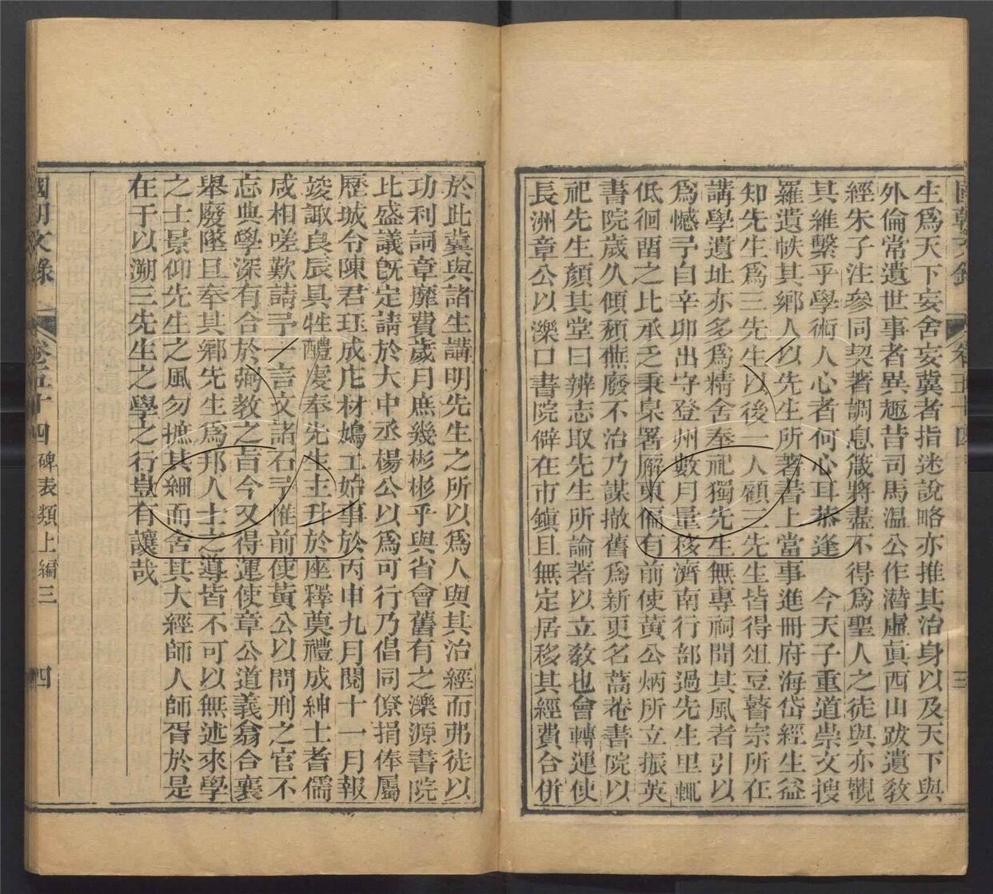 國朝文錄 卷五十四 三
生爲天下妄舍妄冀者指迷說略亦推其治身以及天下與
外倫常遺世事者異趣昔司馬溫公作潛虛眞西山跋遺敎
經朱子注參同契著調息箴將盡不得爲聖人之徒與亦觀
其維繫乎學術人心者何心耳恭逢 今天子重道崇文搜
羅遺帙其鄉人以先生所著書上當事進冊府海岱經生益
知先生爲三先生以後一人顧三先生皆得俎豆瞽宗所在
講學遺址亦多爲精舍奉祀獨先生無專祠聞其風者引以
爲憾予自辛卯出守登州數月量移濟南行部過先生里輒
低徊畱之比承乏秉臬署廨東偏有前使黃公炳所立振英
書院歲久傾頹蕪廢不治乃謀撤舊爲新更名蒿菴書院以
祀先生顏其堂曰辨志取先生所論著以立敎也會轉運使
長洲章公以濼口書院僻在市鎮且無定居移其經費合併
於此冀與諸生講明先生之所以爲人與其治經而弗徒以
功利詞章靡費歲月庶幾彬彬乎與省會舊有之濼源書院
比盛議旣定請於大中丞楊公以爲可行乃倡同僚捐俸屬
歷城令陳君珏成庀材鳩工始事於丙申九月閱十一月報
竣諏良辰具牲醴虔奉先生主升於座釋奠禮成紳士耆儒
咸相嗟歎請予一言文諸石予惟前使黃公以問刑之官不
忘典學深有合於弼教之旨今又得運使章公道義翕合襄
舉廢墜且奉其鄉先生爲邦人士之導皆不可以無述來學
之士景仰先生之風勿摭其細而舍其大經師人師胥於是
在于以溯三先生之學之行豈有讓哉
國朝文錄 卷五十四 碑表類上編三 四